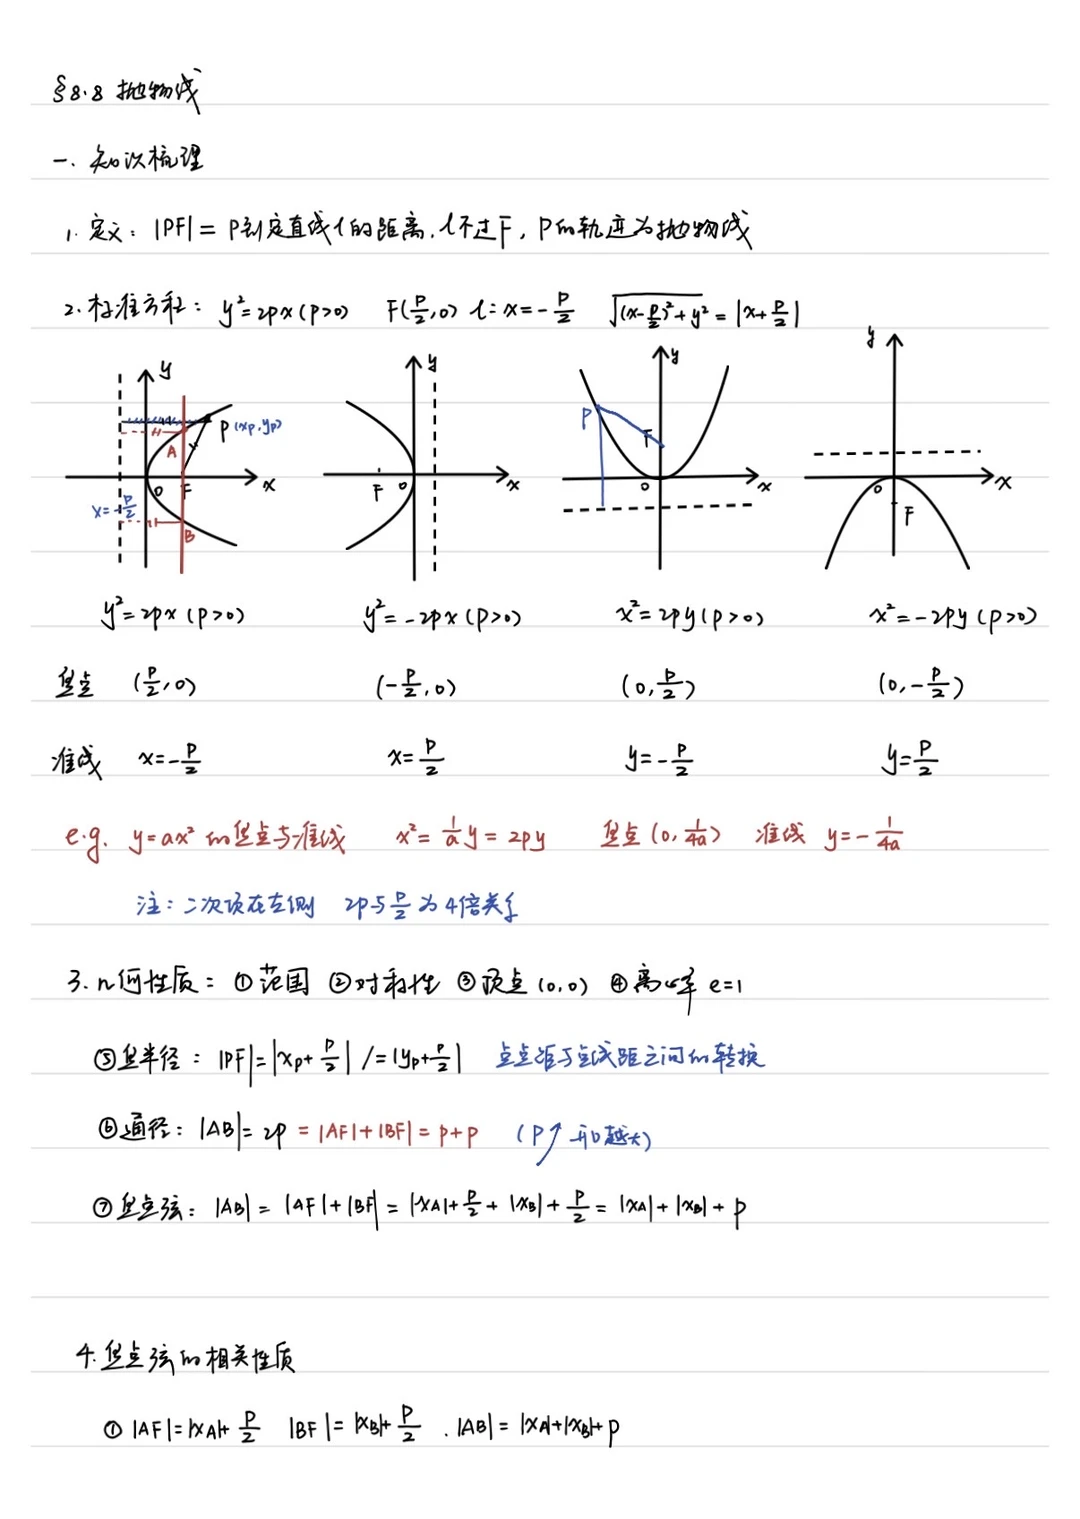 §8.8 抛物线
一. 知识梳理
1. 定义: |PF| = P到定直线l的距离, l不过F, P的轨迹为抛物线
2. 标准方程: y²=2px(p>0) F(p/2,0) l: x=-p/2 √((x-p/2)²+y²) = |x+p/2|
y y y y
P(xp,yp) P F
A
x x x x
O F F O O O F
x=-p/2
B
y²=2px(p>0) y²=-2px(p>0) x²=2py(p>0) x²=-2py(p>0)
焦点 (p/2,0) (-p/2,0) (0,p/2) (0,-p/2)
准线 x=-p/2 x=p/2 y=-p/2 y=p/2
e.g. y=ax²的焦点与准线 x²=1/a y=2py 焦点(0,1/4a) 准线 y=-1/4a
注: 二次项在左侧 2p与p/2为4倍关系
3. 几何性质: ①范围 ②对称性 ③顶点(0,0) ④离心率 e=1
⑤焦半径: |PF|=|xp+p/2| /=|yp+p/2| 点点距与点线距之间的转换
⑥通径: |AB|=2p =|AF|+|BF|=p+p (p↗开口越大)
⑦焦点弦: |AB|=|AF|+|BF|=|xA|+p/2+|xB|+p/2=|xA|+|xB|+p
4. 焦点弦的相关性质
① |AF|=|xA|+p/2 |BF|=|xB|+p/2 . |AB|=|xA|+|xB|+p